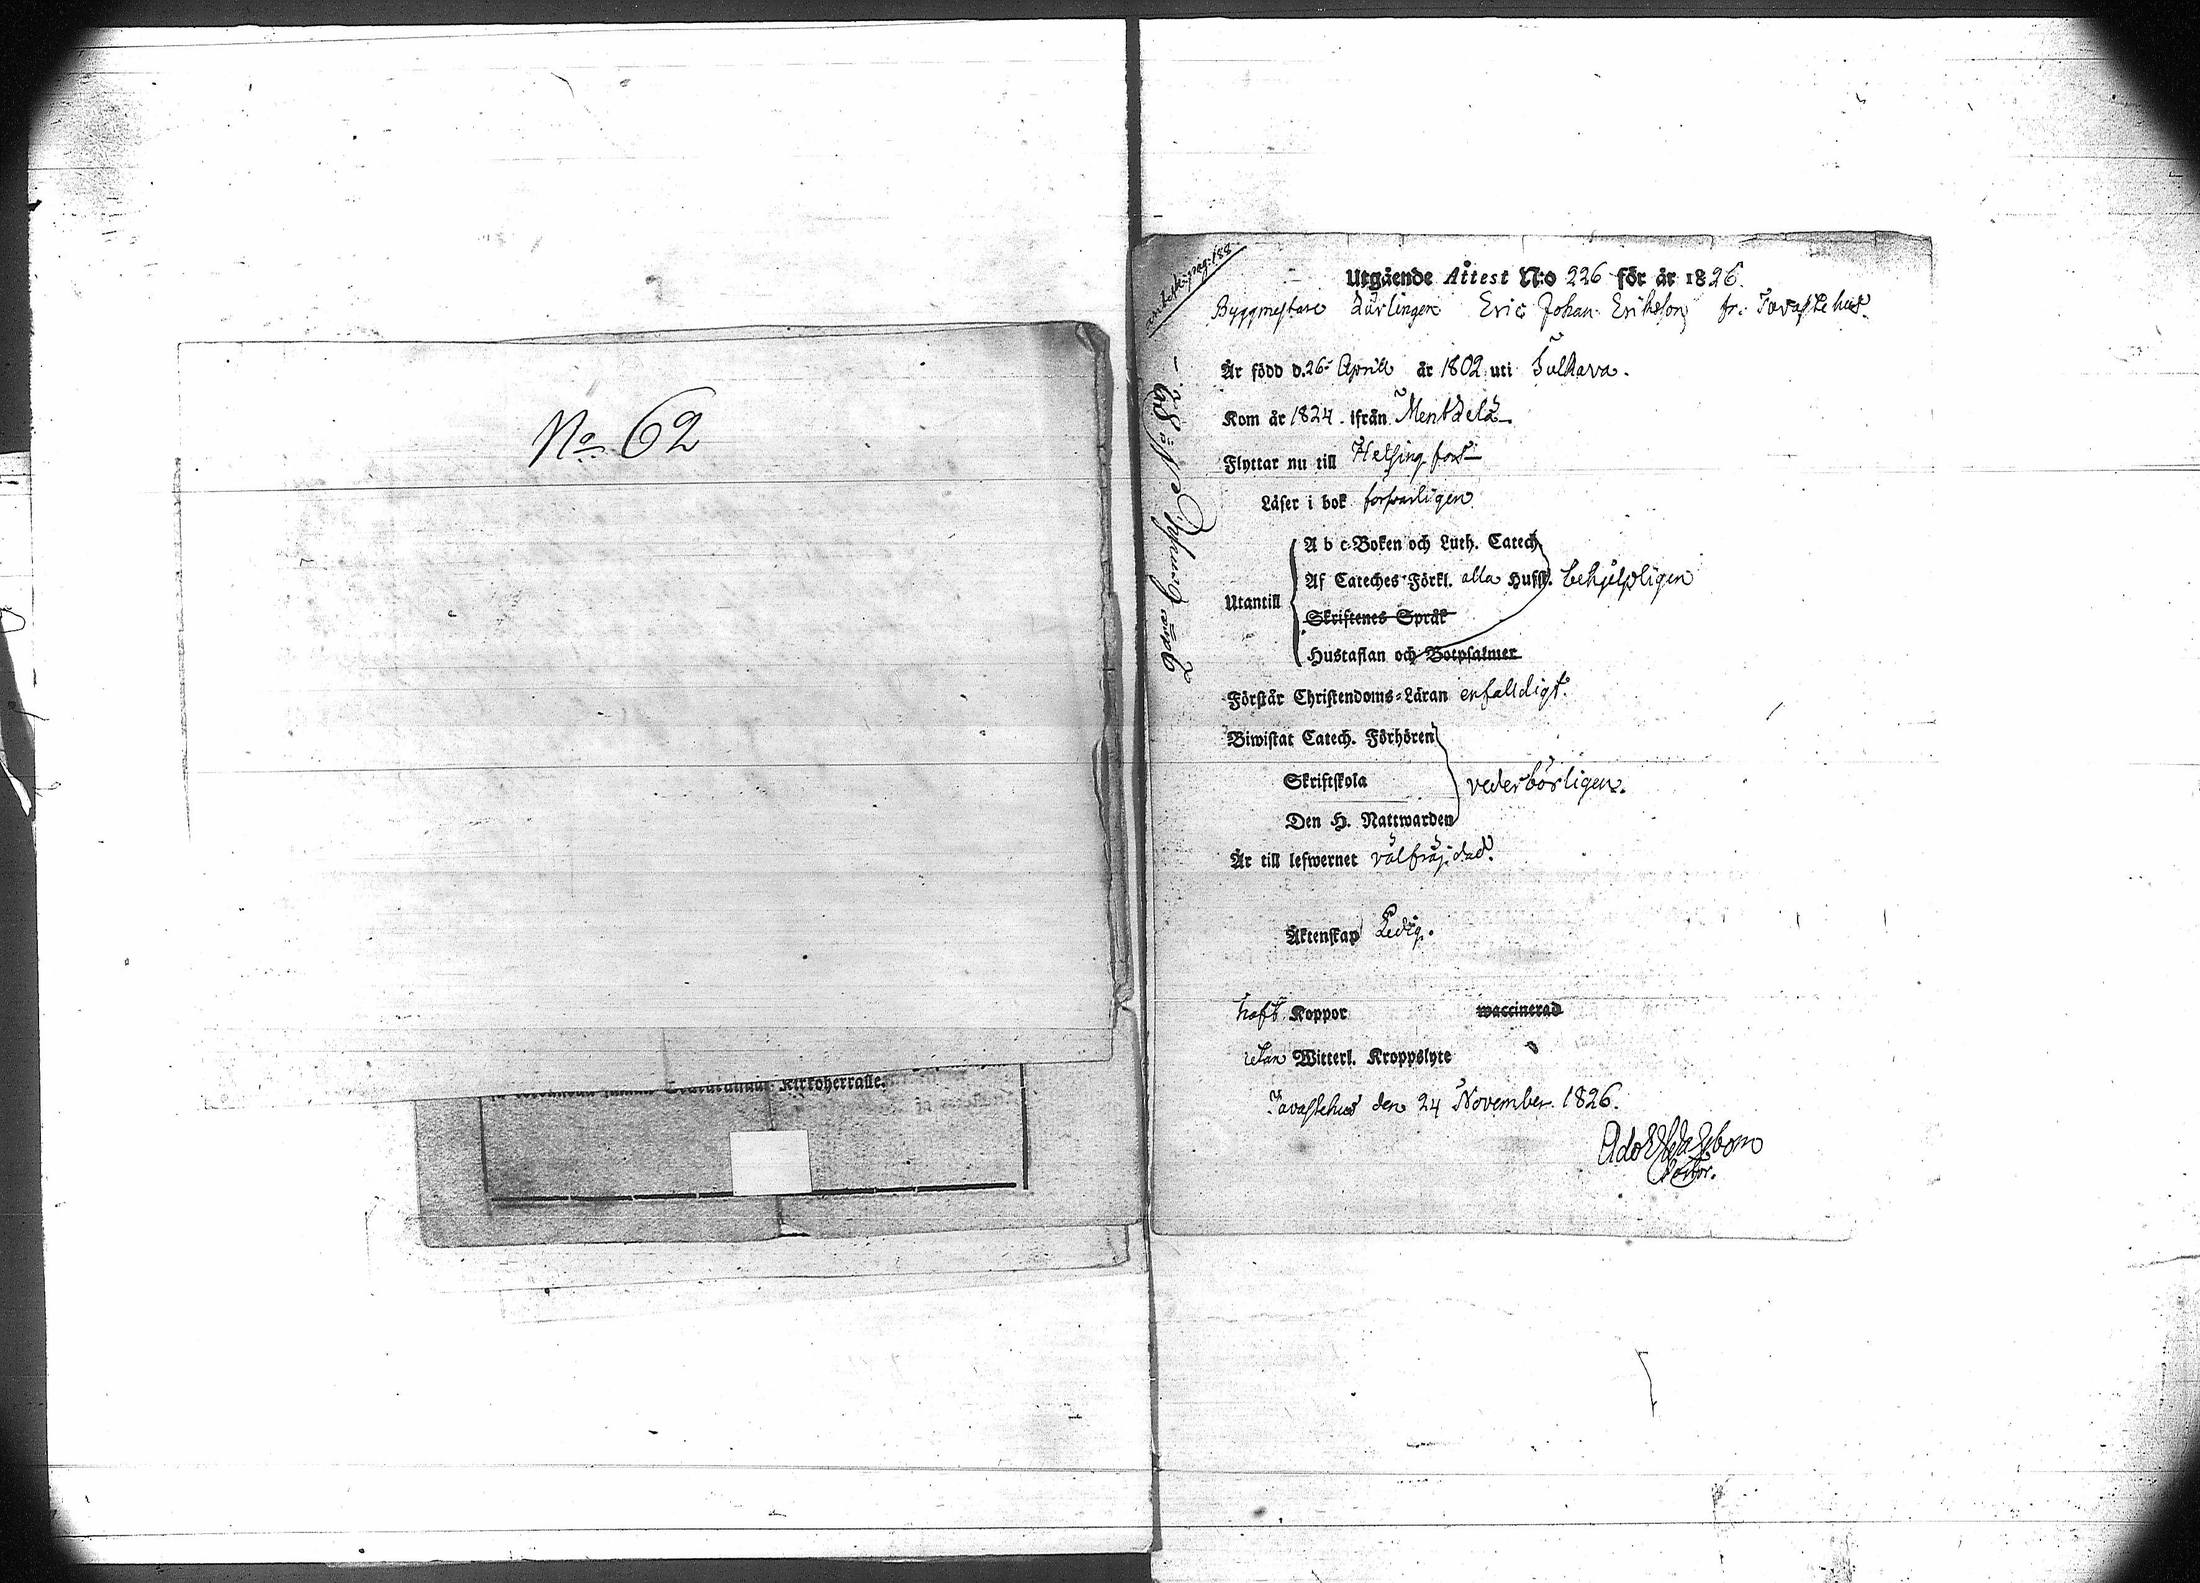 No 62
Kirkoherralle.
Utgående Attest N:o 226 för år 1826.
Byggmestare Lärlingen Eric Johan Erikson fr. Tavastehus.
Är född d. 26 April år 1802 uti Sulkava.
Kom år 1824 ifrån Mentzelä
Flyttar nu till Helsingfors
Läser i bok forsvarligen
A b c-Boken och Luth. Catech.
Af Cateches Förkl. alla Hufst. behjelpligen
Utantill
Skriftenes Språk
Hustaflan och Botpsalmer
Förstår Christendoms-Läran enfalldigt.
Biwistat Catech. Förhören
Skriftskola
vederbörligen.
Den H. Nattwarden
Är till lefwernet välfräjdad.
Äktenskap Ledig.
haft Koppor waccinerad
utan Witterl. Kroppslyte
Tavastehus den 24 November 1826.
Pastor.